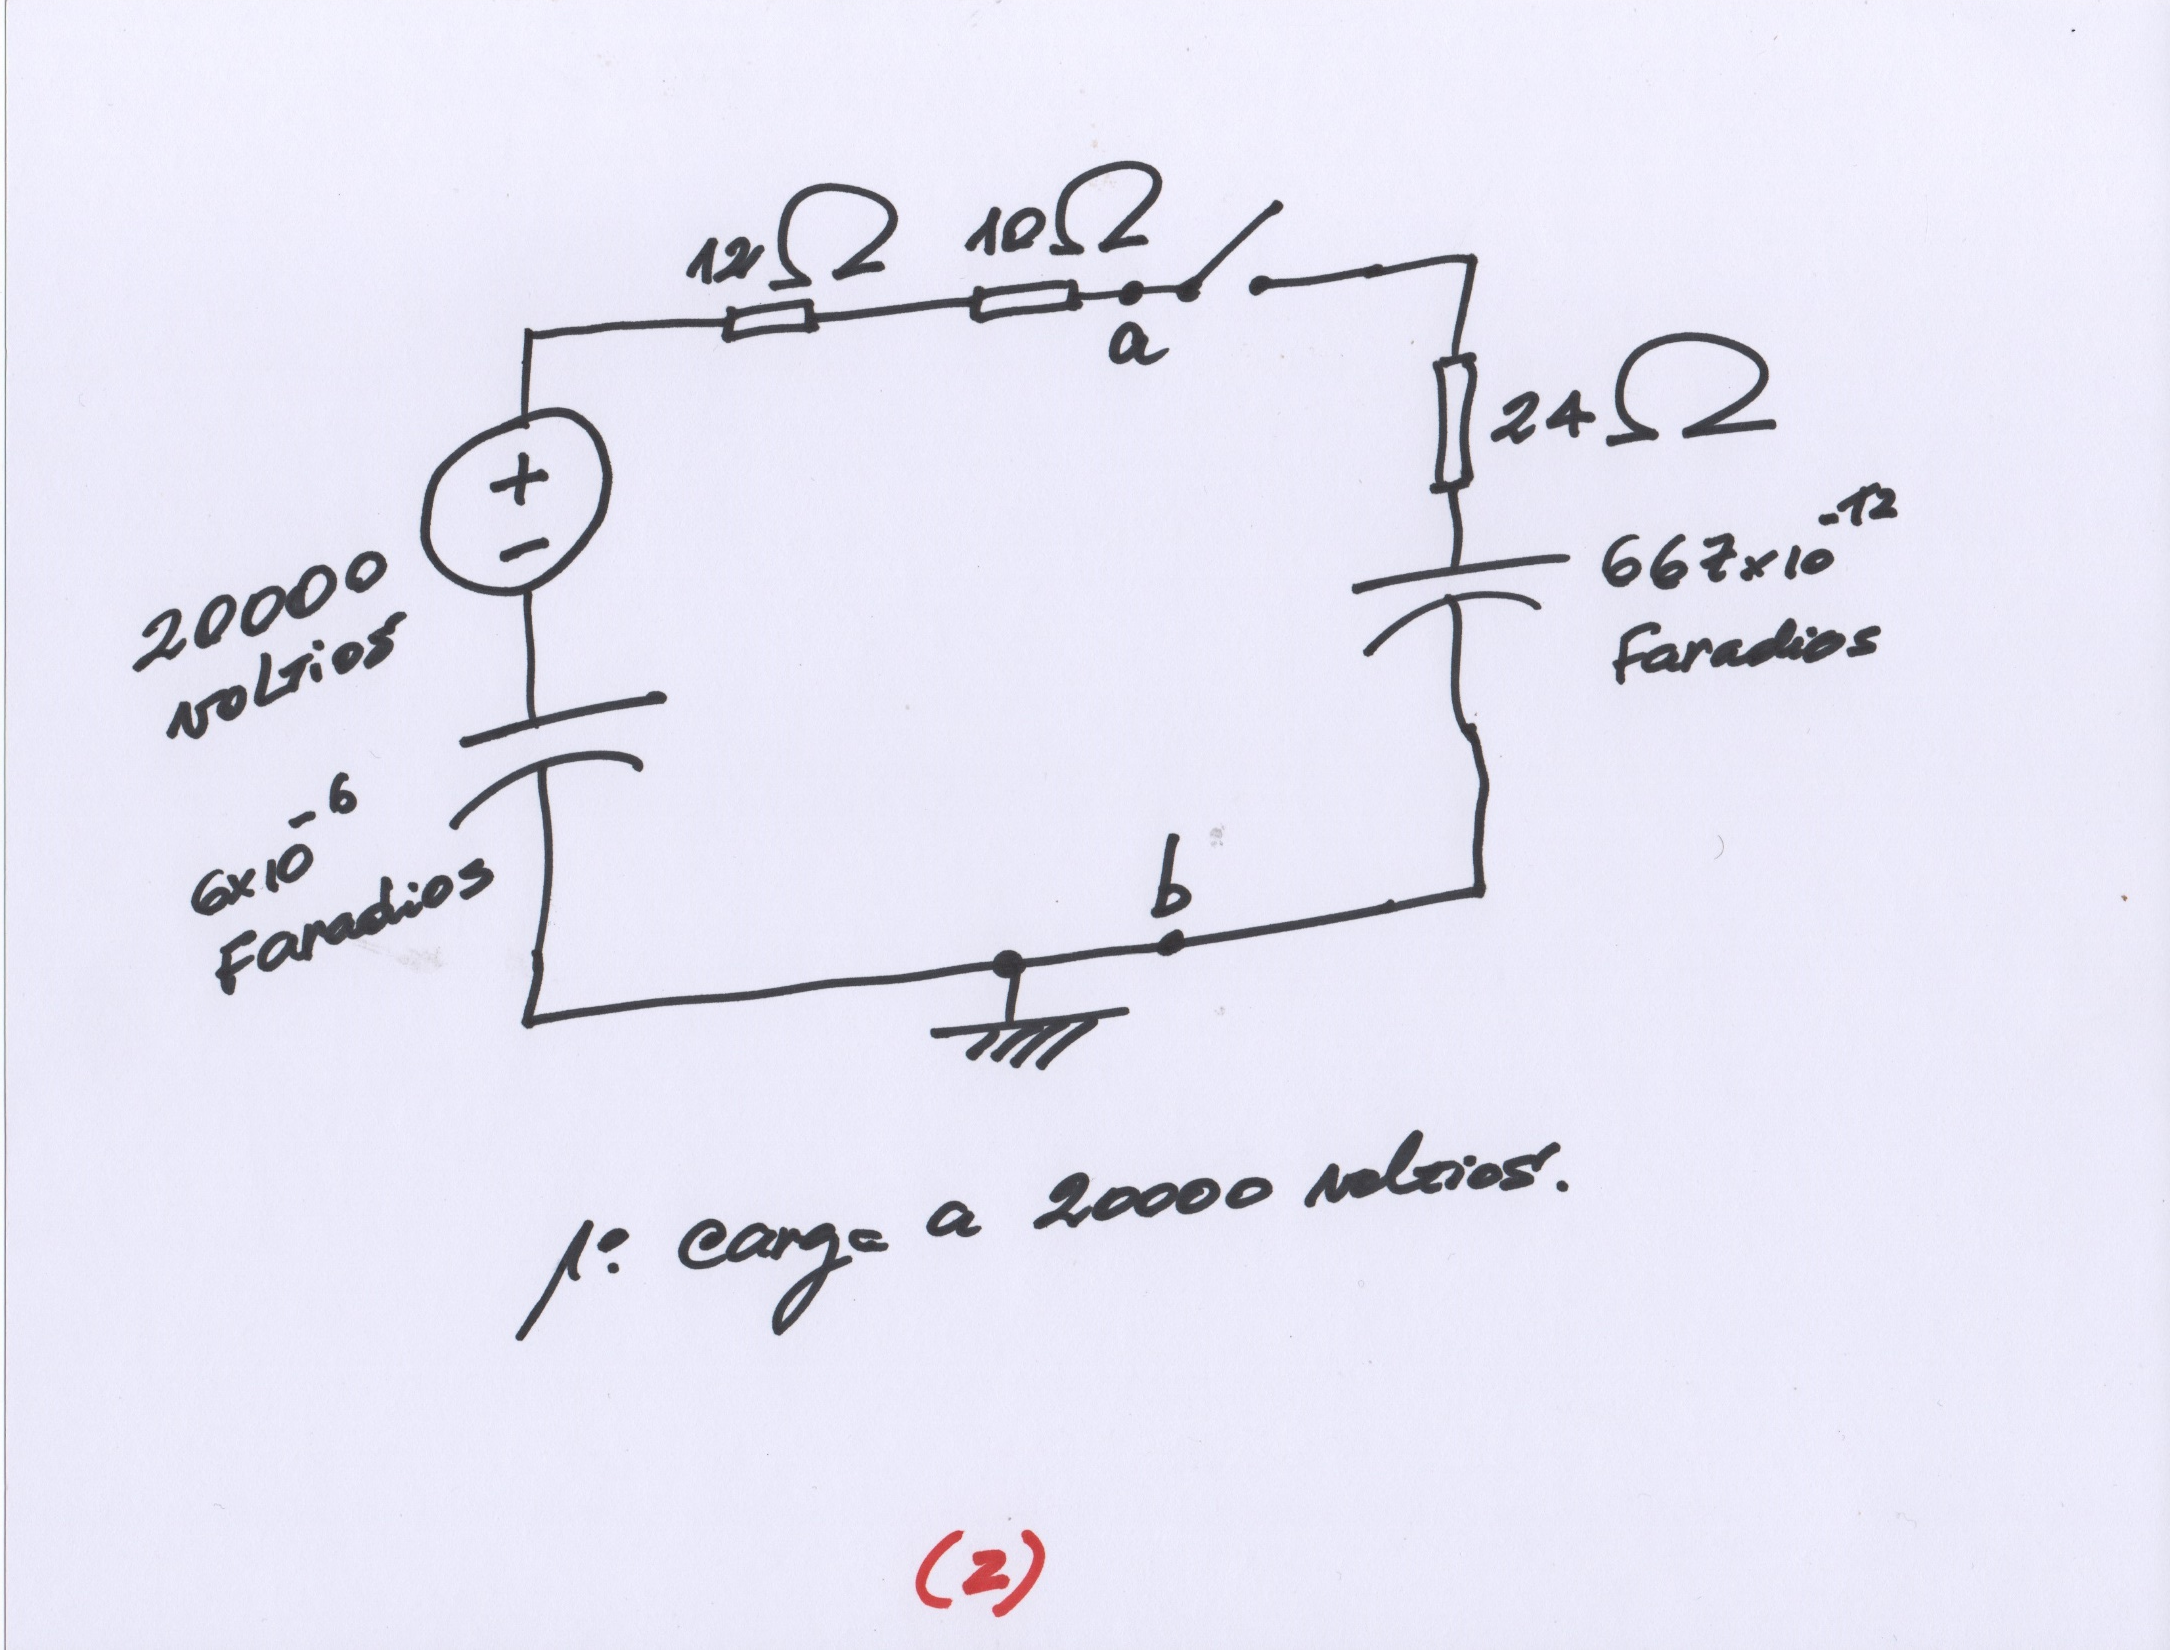 12Ω 10Ω
a
24Ω
+
-
20000
voltios
667x10⁻¹²
faradios
6x10⁻⁶
Faradios
b
1º: carga a 20000 voltios.
(2)